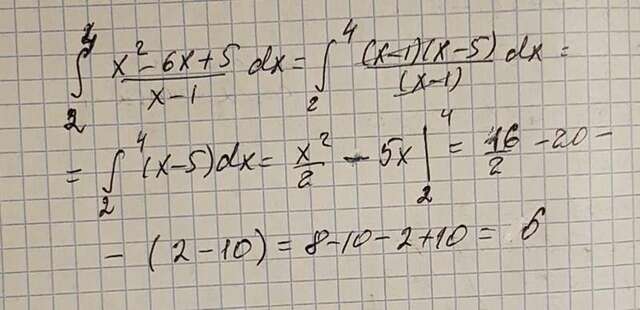 ∫₂⁴ (x² - 6x + 5)/(x - 1) dx = ∫₂⁴ ((x-1)(x-5))/((x-1)) dx =
= ∫₂⁴ (x-5) dx = x²/2 - 5x |₂⁴ = 16/2 - 20 -
- (2 - 10) = 8 - 10 - 2 + 10 = 6